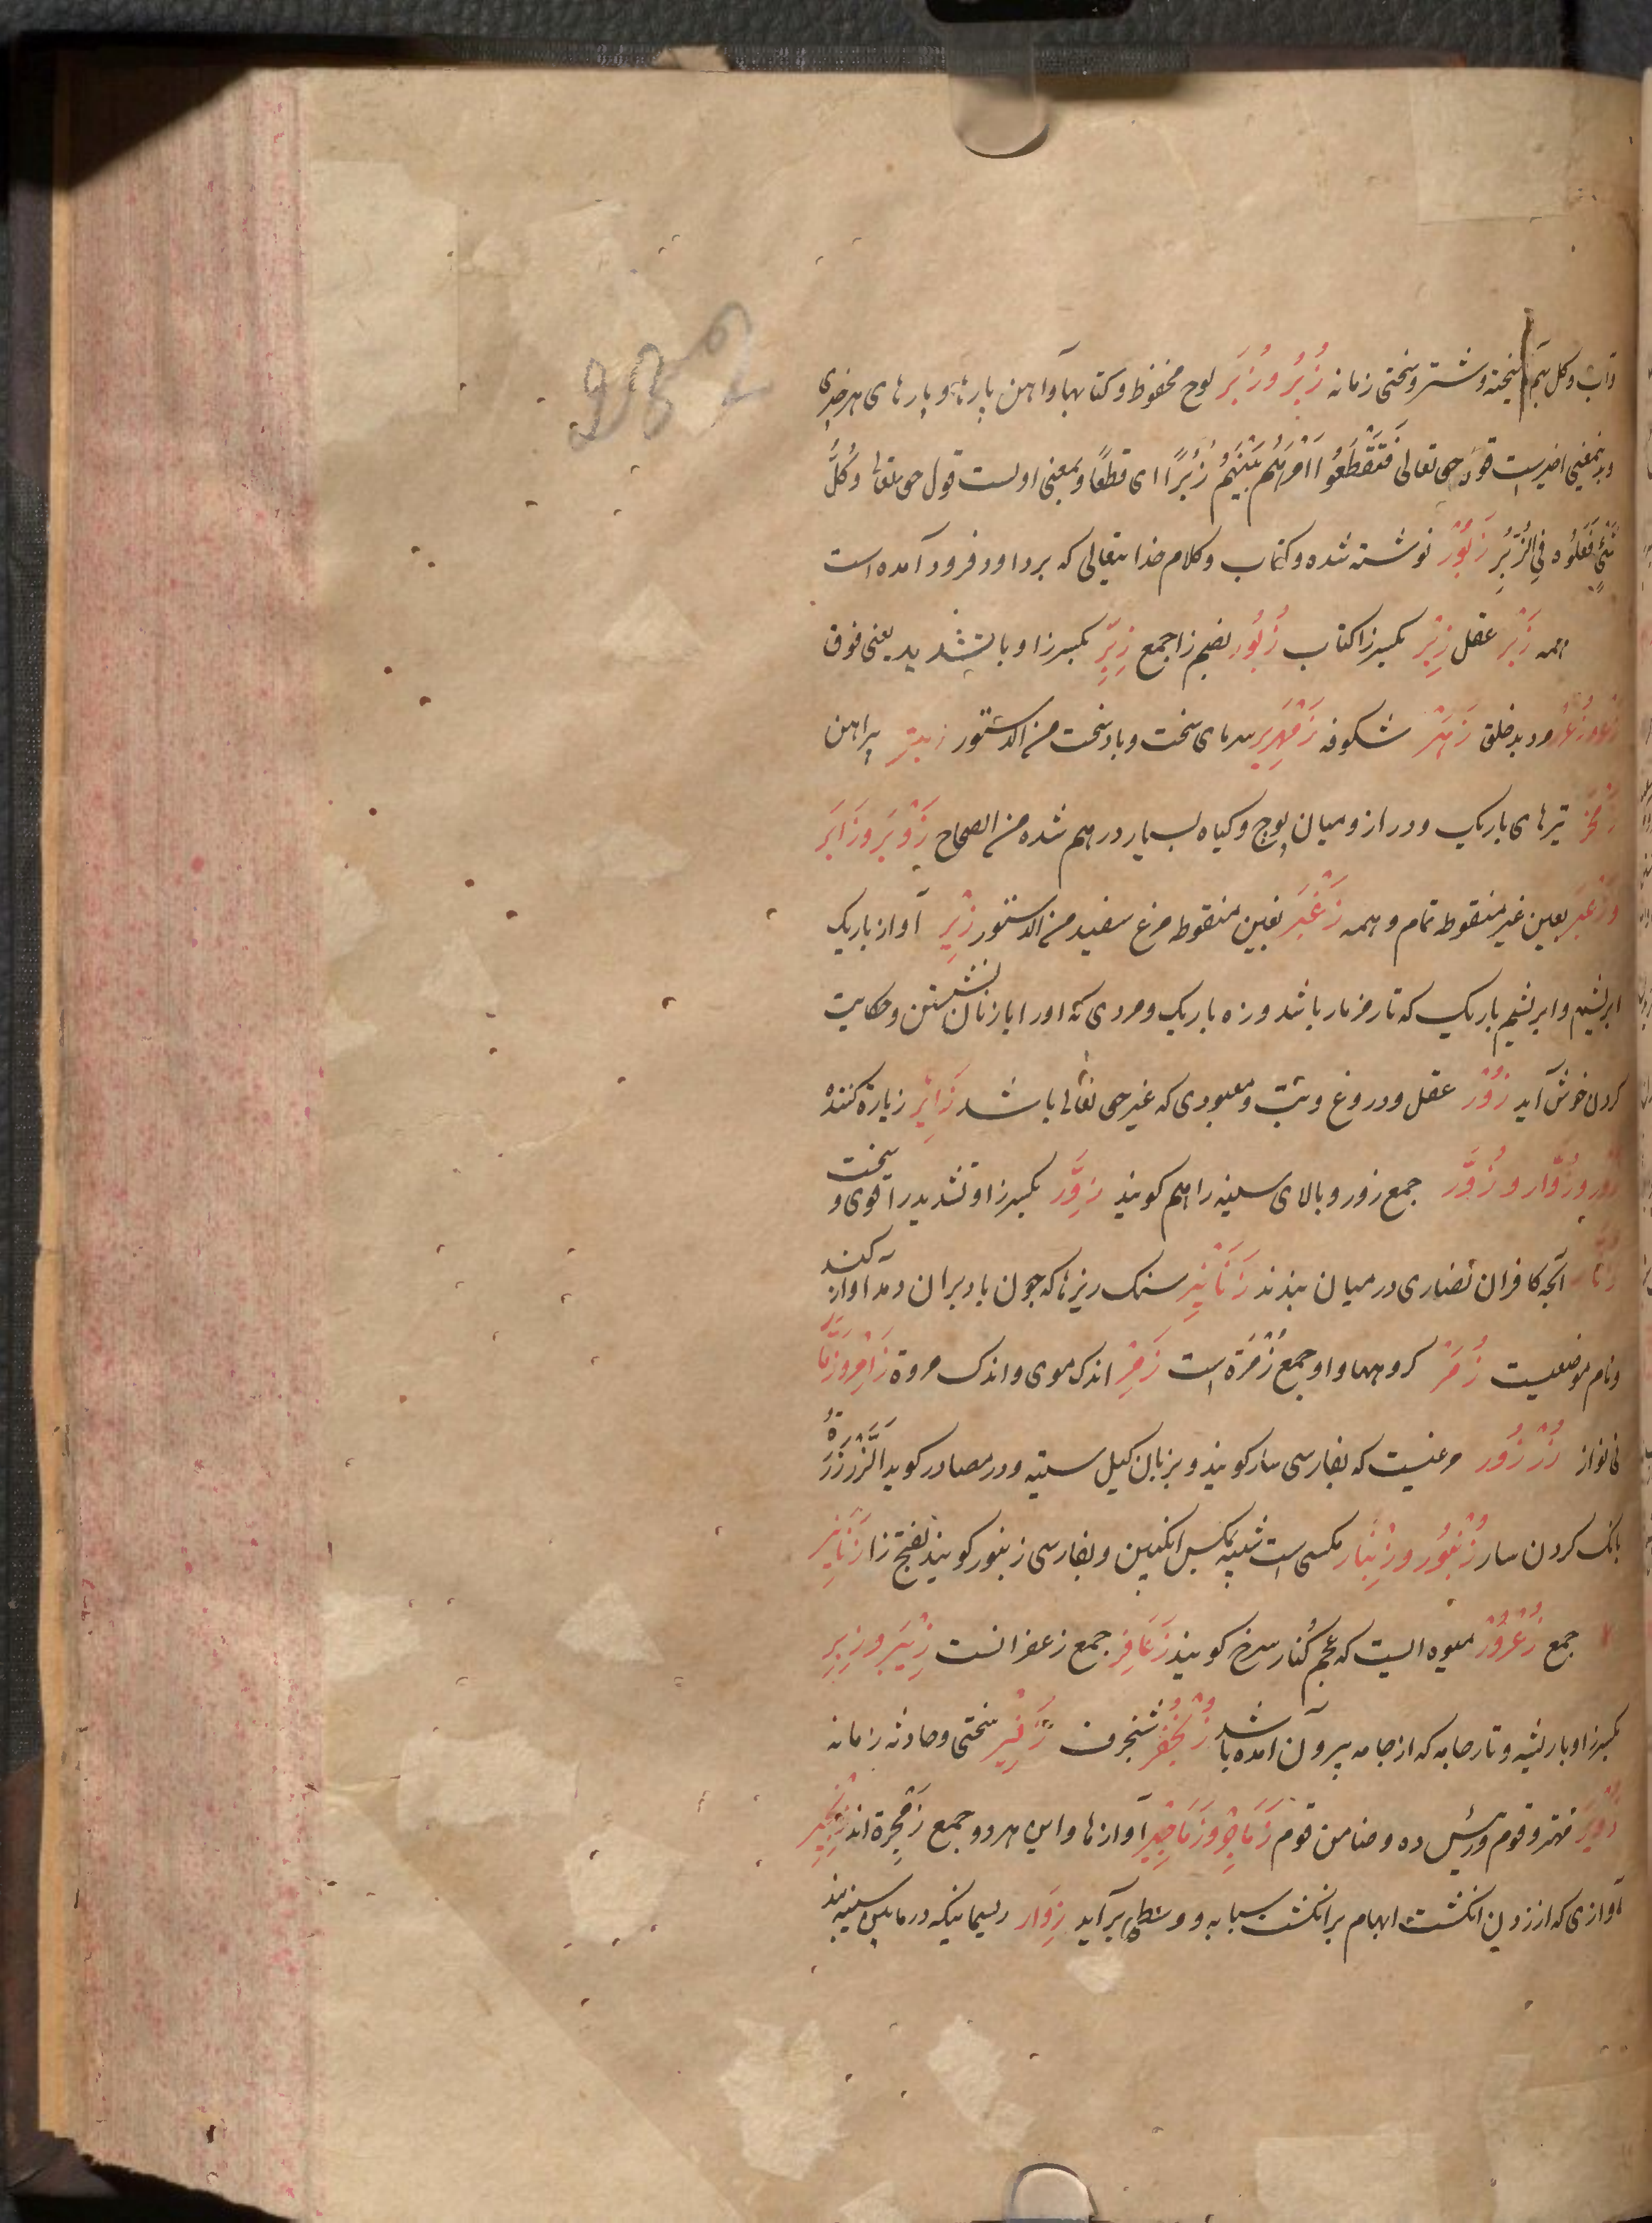 وآب و گل بهم آمیخته و شتر و سختی زمانه زُبُر و زُبَر لوح محفوظ و کتابها و آهن پارها و پارهای هر چیزی
و بدین معنی اخیرست قول حق تعالی فَتَقَطَّعُوا اَمْرَهُم بَیْنَهُمْ زُبُرًا ای قطعًا و بمعنی اولست قول حق تعالی وَکُلُّ
شَیْءٍ فَعَلُوهُ فِی الزُّبُرِ زَبُوْر نوشته شده و کتاب و کلام خدایتعالی که بر داود فرود آمده است
همه زَبْر عقل زِبْر بکسر زا کتاب زُبُور بضم زا جمع زِبِرّ بکسر زا و با تشدید یعنی قوی
زَعِر و زُعْرور بدخلق زَهْر شکوفه زَمْهَرِیر سرمای سخت و باد سخت من الدستور پیراهن
زَمْخَر تیرهای باریک و دراز و میان پوچ و گیاه بسیار درهم شده من الصحاح زَوْبَر و زَابَر
و زَعْبَر بعین غیر منقوطه تمام و همه زَغْبَر بغین منقوطه مرغ سفید من الدستور زِیْر آواز باریک
ابریشم و ابریشم باریک که تار مزمار باشد و زه باریک و مردی که او را با زنان نشستن و حکایت
کردن خوش آید زُوْر عقل و دروغ و بت و معبودی که غیر حق تعالی باشد زَائِر زیارة کننده
زُوْر و زُوَّار و زُوَّر جمع زور و بالای سینه را هم کویند زِوَرّ بکسر زا و تشدید را قوی و سخت
زُنَّار آنچه کافران نصاری در میان بندند زَنَانِیر سنک ریزها که چون باد بران دمد آواز کند
و نام موضعیست زُمَر کروهها و او جمع زُمْرَة است زَمِر اندک موی و اندک مروة زَامِر و زَمَّار
نی نواز زُرْزُور مرغیست که بفارسی سار کویند و بزبان کیل سیته و در مصادر کوید اَلزَّرْزَرَةُ
بانک کردن سار زُنْبُور و زِنْبَار مکسی است شبیه بمکس انکبین و بفارسی زنبور کویند بفتح زا زَنَابِیر
جمع زُعْرُوْر میوه ایست که عجم کُنار سرخ کویند زَعَافِر جمع زعفرانست زِئْبَر و زِئْبِر
بکسر زا و با ریشه و تار جامه که از جامه بیرون آمده باشد زُنْجُفْر شنجرف زَفِیْر سختی و حادثه زمانه
زُوَیْر مهتر قوم و رئیس ده و ضامن قوم زَمَاجِر و زَمَاجِیْر آوازها و این هر دو جمع زَمْجَرة اند زِنْجِیْر
آوازی که از زدن انکشت ابهام بر انکشت سبابه و وسطی برآید زِوَار ریسمانیکه در مابین سینه بند